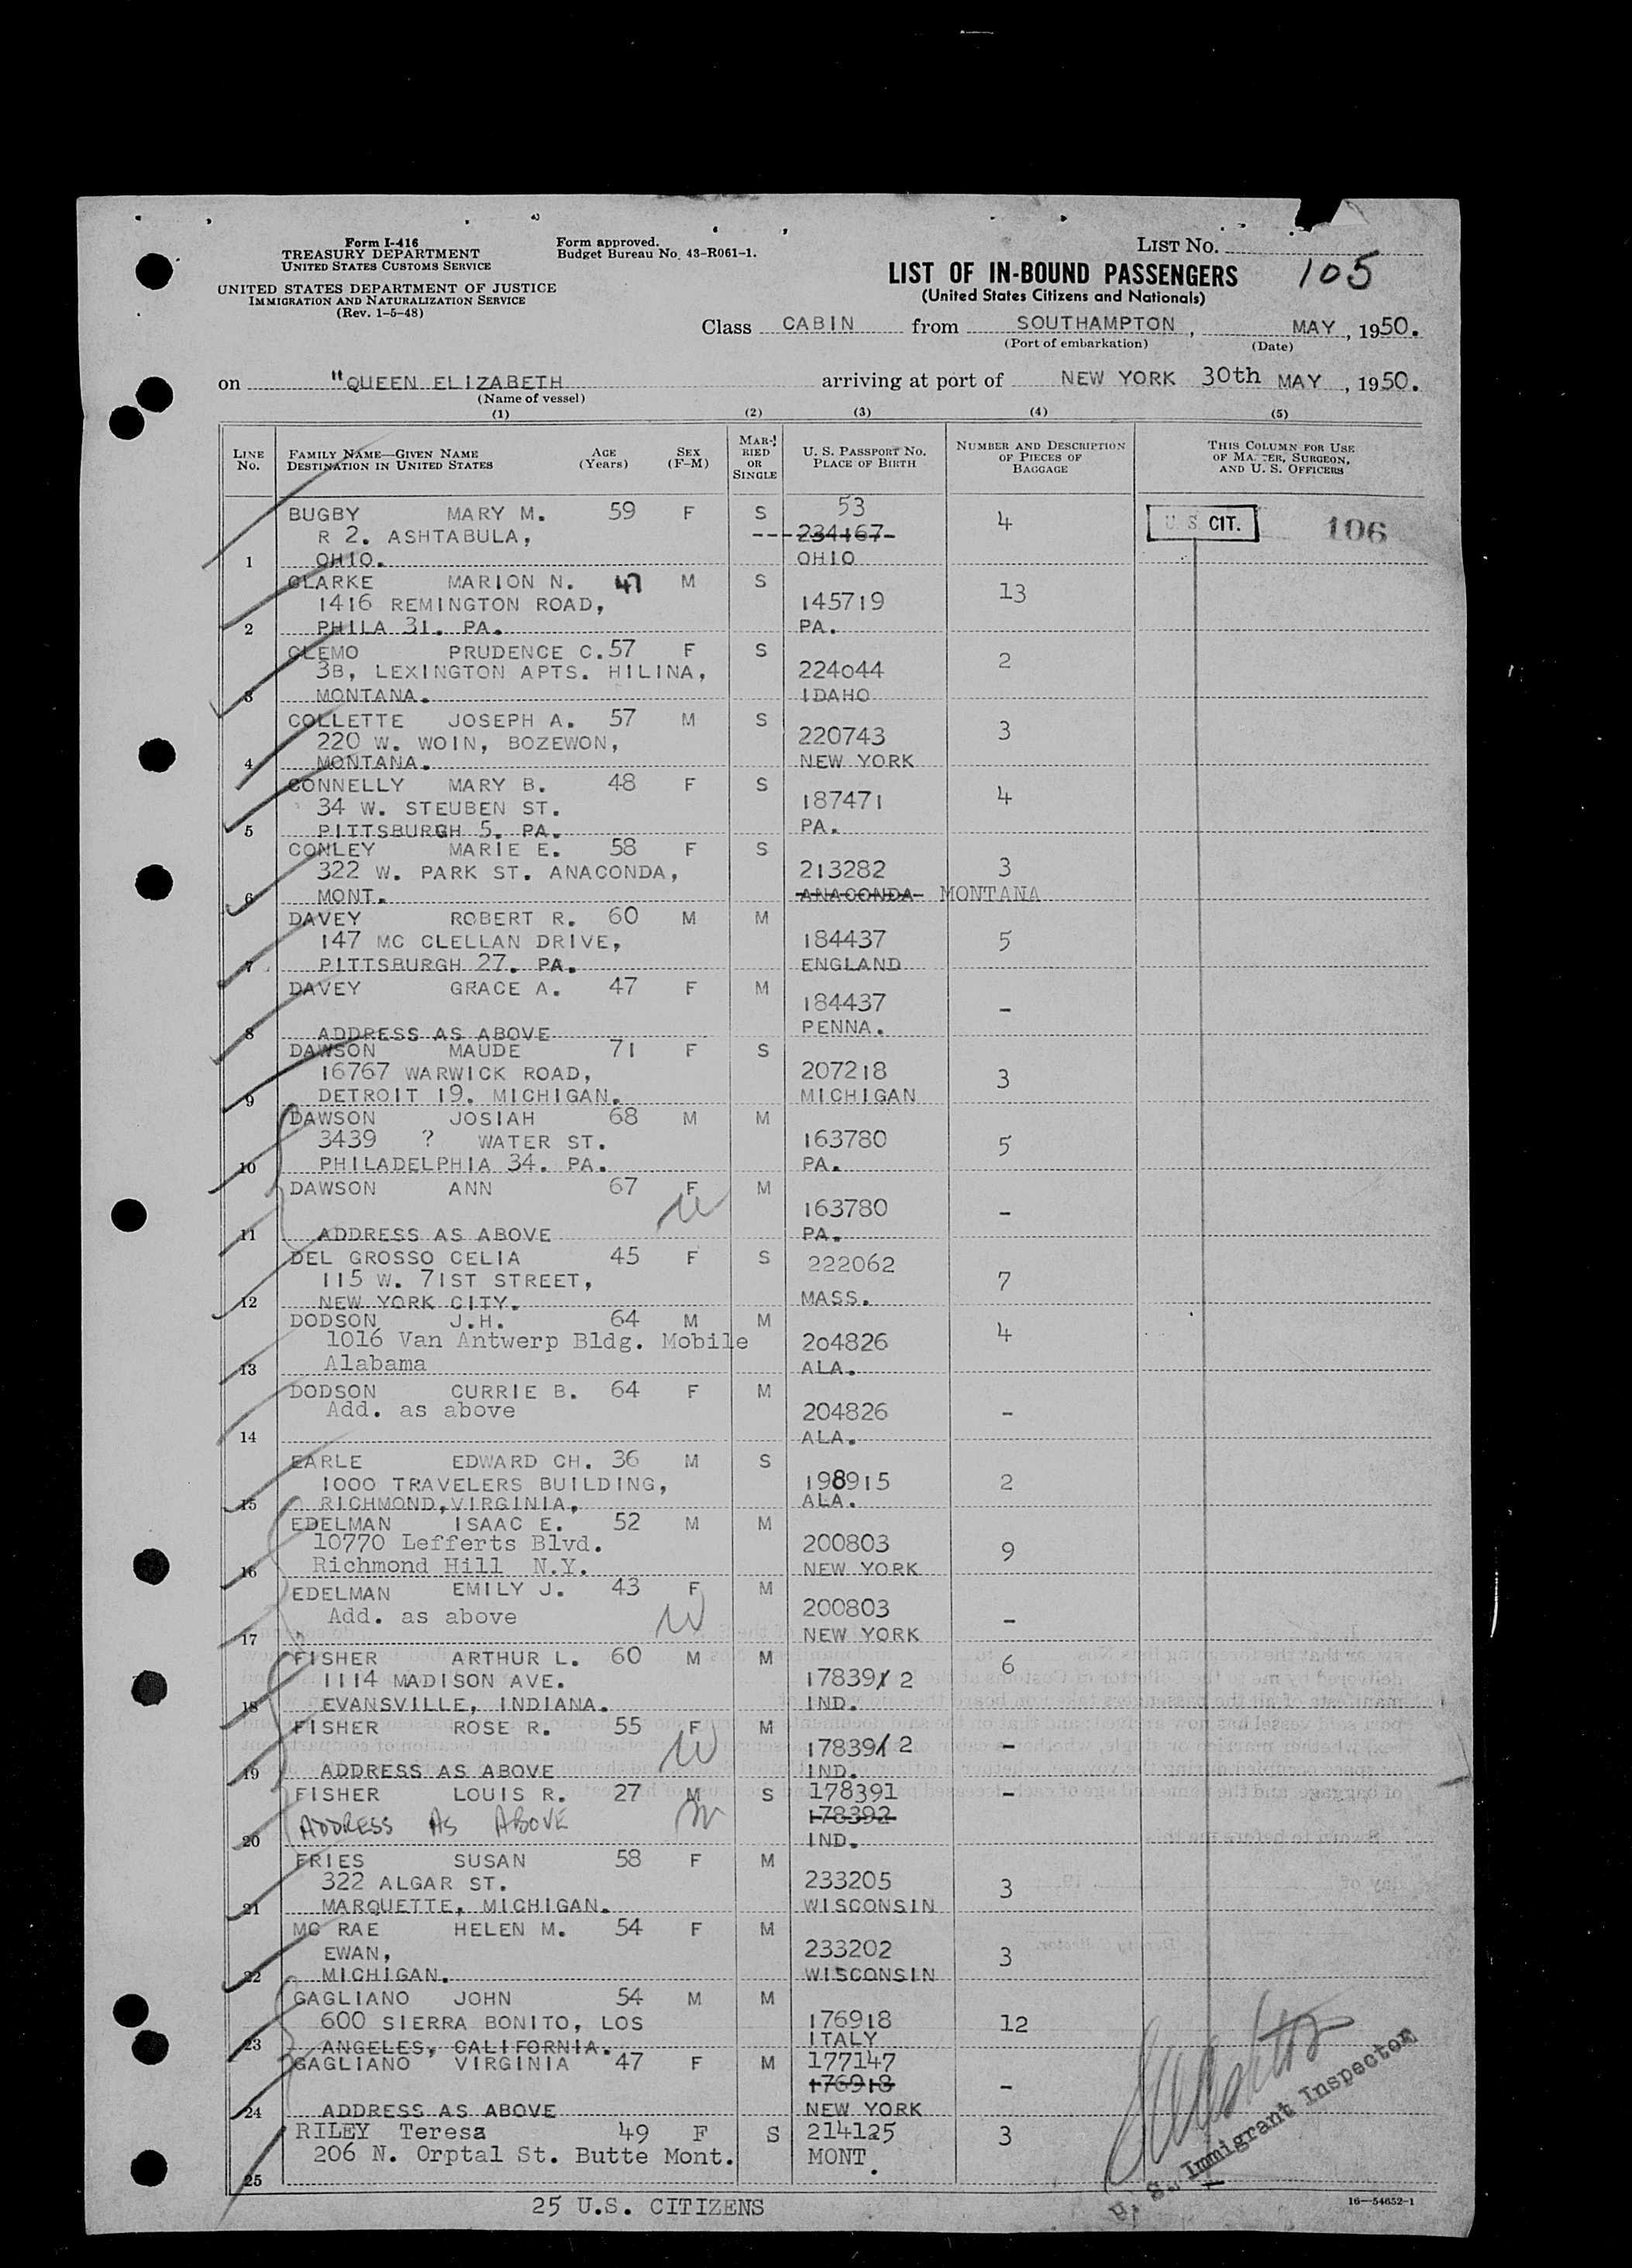 Form I-416
TREASURY DEPARTMENT
UNITED STATES CUSTOMS SERVICE
UNITED STATES DEPARTMENT OF JUSTICE
IMMIGRATION AND NATURALIZATION SERVICE
(Rev. 1-5-48)
Form approved.
Budget Bureau No. 43-R061-1.
LIST No.
105
LIST OF IN-BOUND PASSENGERS
(United States Citizens and Nationals)
Class CABIN from SOUTHAMPTON, MAY, 1950.
(Port of embarkation) (Date)
on "QUEEN ELIZABETH arriving at port of NEW YORK 30th MAY, 1950.
(Name of vessel)
(1) (2) (3) (4) (5)
LINE No.
FAMILY NAME—GIVEN NAME
DESTINATION IN UNITED STATES
AGE (Years)
SEX (F-M)
MARRIED OR SINGLE
U. S. PASSPORT NO.
PLACE OF BIRTH
NUMBER AND DESCRIPTION OF PIECES OF BAGGAGE
THIS COLUMN FOR USE OF MASTER, SURGEON, AND U. S. OFFICERS
BUGBY MARY M. 59 F S 53 4 U. S. CIT. 106
R 2. ASHTABULA, ---234167-
1 OHIO. OHIO
CLARKE MARION N. 47 M S 13
1416 REMINGTON ROAD, 145719
2 PHILA 31. PA. PA.
CLEMO PRUDENCE C. 57 F S 2
3B, LEXINGTON APTS. HILINA, 224044
3 MONTANA. IDAHO
COLLETTE JOSEPH A. 57 M S 3
220 W. WOIN, BOZEWON, 220743
4 MONTANA. NEW YORK
CONNELLY MARY B. 48 F S 4
34 W. STEUBEN ST. 187471
5 PITTSBURGH 5. PA. PA.
CONLEY MARIE E. 58 F S
322 W. PARK ST. ANACONDA, 213282 3
6 MONT. ANACONDA MONTANA
DAVEY ROBERT R. 60 M M
147 MC CLELLAN DRIVE, 184437 5
7 PITTSBURGH 27. PA. ENGLAND
DAVEY GRACE A. 47 F M
184437 -
8 ADDRESS AS ABOVE PENNA.
DAWSON MAUDE 71 F S
16767 WARWICK ROAD, 207218 3
9 DETROIT 19. MICHIGAN. MICHIGAN
DAWSON JOSIAH 68 M M
3439 ? WATER ST. 163780 5
10 PHILADELPHIA 34. PA. PA.
DAWSON ANN 67 F M
163780 -
11 ADDRESS AS ABOVE PA.
DEL GROSSO CELIA 45 F S 222062
115 W. 71ST STREET, 7
12 NEW YORK CITY. MASS.
DODSON J.H. 64 M M 4
1016 Van Antwerp Bldg. Mobile 204826
13 Alabama ALA.
DODSON CURRIE B. 64 F M
Add. as above 204826 -
14 ALA.
EARLE EDWARD CH. 36 M S
1000 TRAVELERS BUILDING, 198915 2
15 RICHMOND, VIRGINIA, ALA.
EDELMAN ISAAC E. 52 M M
10770 Lefferts Blvd. 200803 9
16 Richmond Hill N.Y. NEW YORK
EDELMAN EMILY J. 43 F M
Add. as above 200803 -
17 NEW YORK
FISHER ARTHUR L. 60 M M 6
1114 MADISON AVE. 178391 2
18 EVANSVILLE, INDIANA. IND.
FISHER ROSE R. 55 F M
178391 2 -
19 ADDRESS AS ABOVE IND.
FISHER LOUIS R. 27 M S 178391 -
ADDRESS AS ABOVE 178392
20 IND.
FRIES SUSAN 58 F M
322 ALGAR ST. 233205 3
21 MARQUETTE, MICHIGAN. WISCONSIN
MC RAE HELEN M. 54 F M
EWAN, 233202 3
22 MICHIGAN. WISCONSIN
GAGLIANO JOHN 54 M M
600 SIERRA BONITO, LOS 176918 12
23 ANGELES, CALIFORNIA. ITALY
GAGLIANO VIRGINIA 47 F M 177147
176918 -
24 ADDRESS AS ABOVE NEW YORK
RILEY Teresa 49 F S 214125 3
206 N. Orptal St. Butte Mont. MONT.
25
U. S. Immigrant Inspector
25 U.S. CITIZENS
16—54652-1